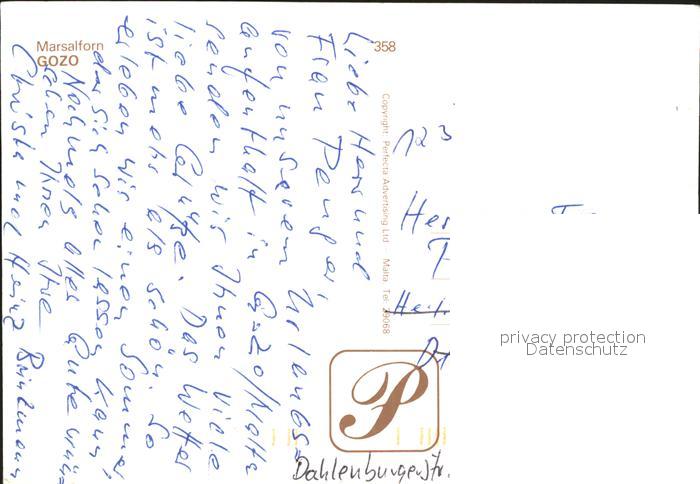 Marsalforn
GOZO
358
Liebe Herr und
Frau Penger,
von unserem Urlaubs-
aufenthalt in Gozo/Malta
senden wir Ihnen viele
liebe Grüße. Das Wetter
ist mehr als schön. So
erleben wir einen Sommer,
der sich sehen lassen kann.
Nochmals alles Gute
Ihnen Ihre
Christa und Heinz Brinkmann
Copyright: Perfecta Advertising Ltd Malta Tel 29068
123
Her
P
Dahlenburgerstr.
privacy protection
Datenschutz